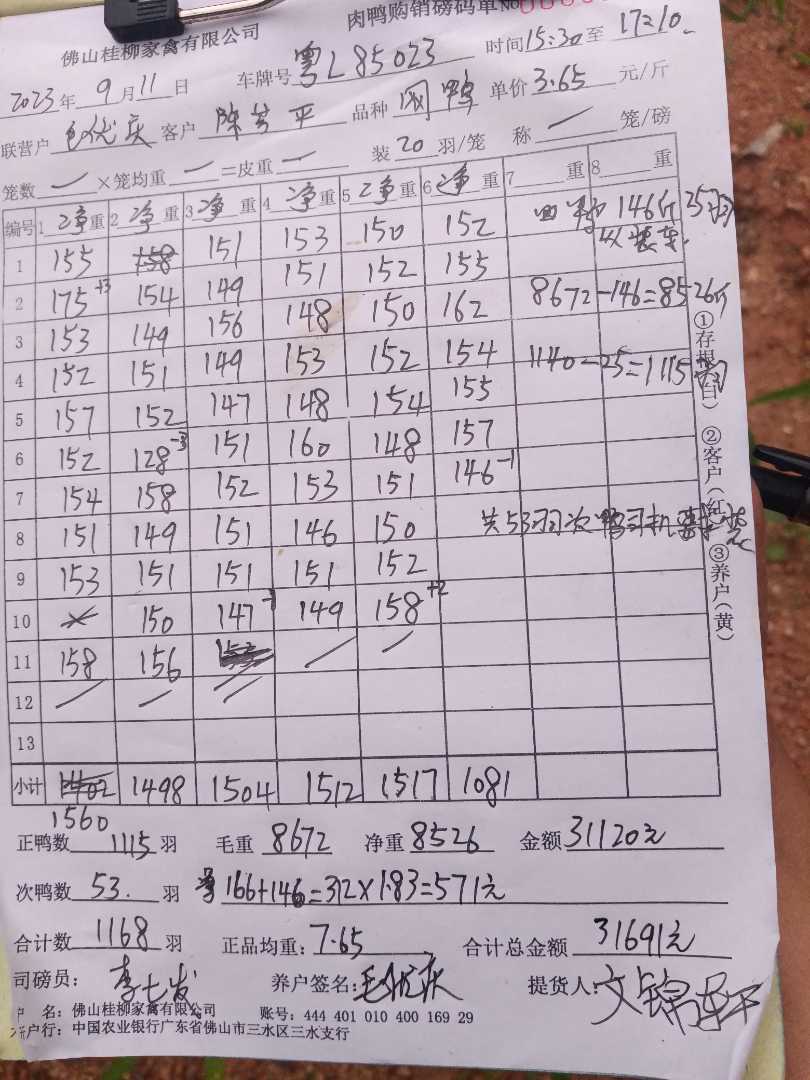 肉鸭购销磅码单 No
佛山桂柳家禽有限公司
2023年 9月 11日 车牌号 粤L85023 时间 15:30 至 17:10
联营户 毛优庆 客户 陈 平 品种 网鸭 单价 3.65 元/斤
笼数 — ×笼均重 — =皮重 — 装 20 羽/笼 称 — 笼/磅
编号 1 净 重 2 净 重 3 净 重 4 净 重 5 净 重 6 净 重 7 重 8 重
1 155 158 151 153 150 152 146斤 25羽
2 175+3 154 149 151 152 155
3 153 149 156 148 150 162 8672-146=8526斤
4 152 151 149 153 152 154 1140-25=1115羽
5 157 152 147 148 154 155
6 152 128-3 151 160 148 157
7 154 158 152 153 151 146-1
8 151 149 151 146 150 共53羽次鸭司机
9 153 151 151 151 152
10 150 147 149 158+2
11 158 156 153 / /
12 / / /
13
小计 1402 1498 1504 1512 1517 1081
1560
正鸭数 1115 羽 毛重 8672 净重 8526 金额 31120元
次鸭数 53. 羽 166+146=312×1.83=571元
合计数 1168 羽 正品均重: 7.65 合计总金额 31691元
司磅员: 李七发 养户签名: 毛优庆 提货人: 文锦
户 名: 佛山桂柳家禽有限公司 账号: 444 401 010 400 169 29
开户行: 中国农业银行广东省佛山市三水区三水支行
①存根(白) ②客户(红) ③养户(黄)